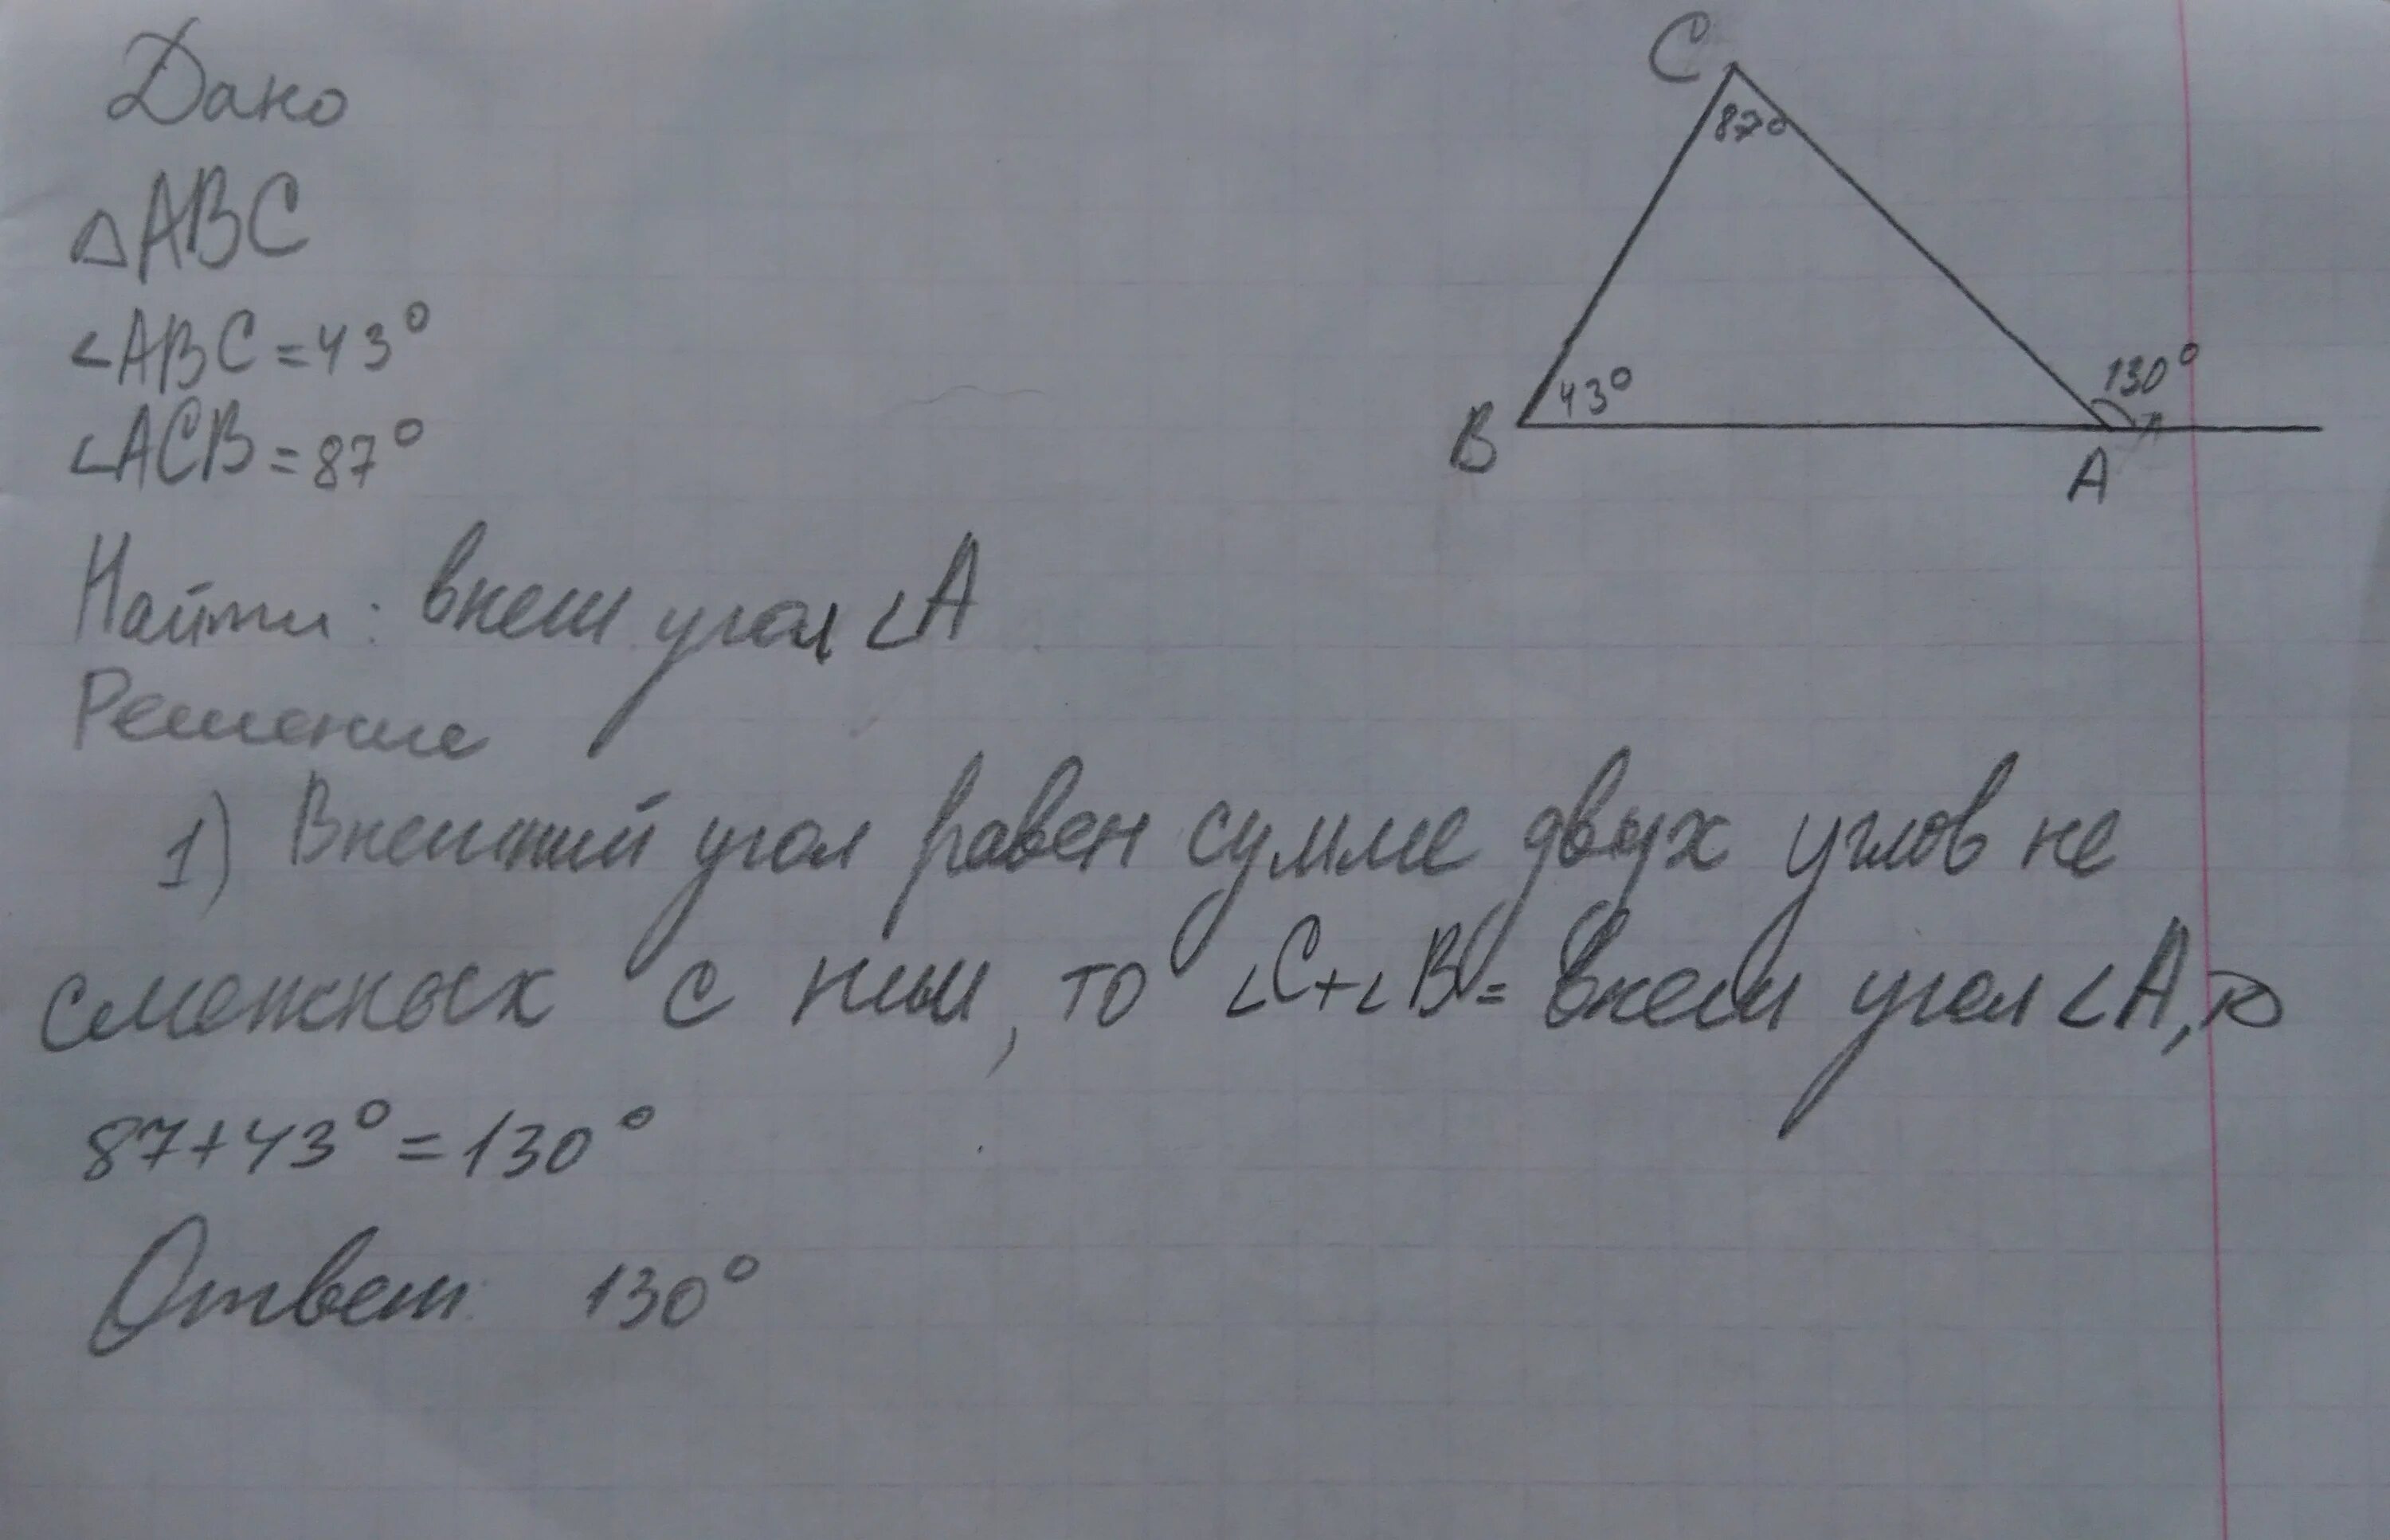 Дано
△ABC
∠ABC=43°
∠ACB=87°
Найти: внеш угол ∠A
Решение
1) Внешний угол равен сумме двух углов не
смежных с ним, то ∠C+∠B= внеш угол ∠A,
87+43°=130°
Ответ: 130°
C
87°
B
43°
130°
A